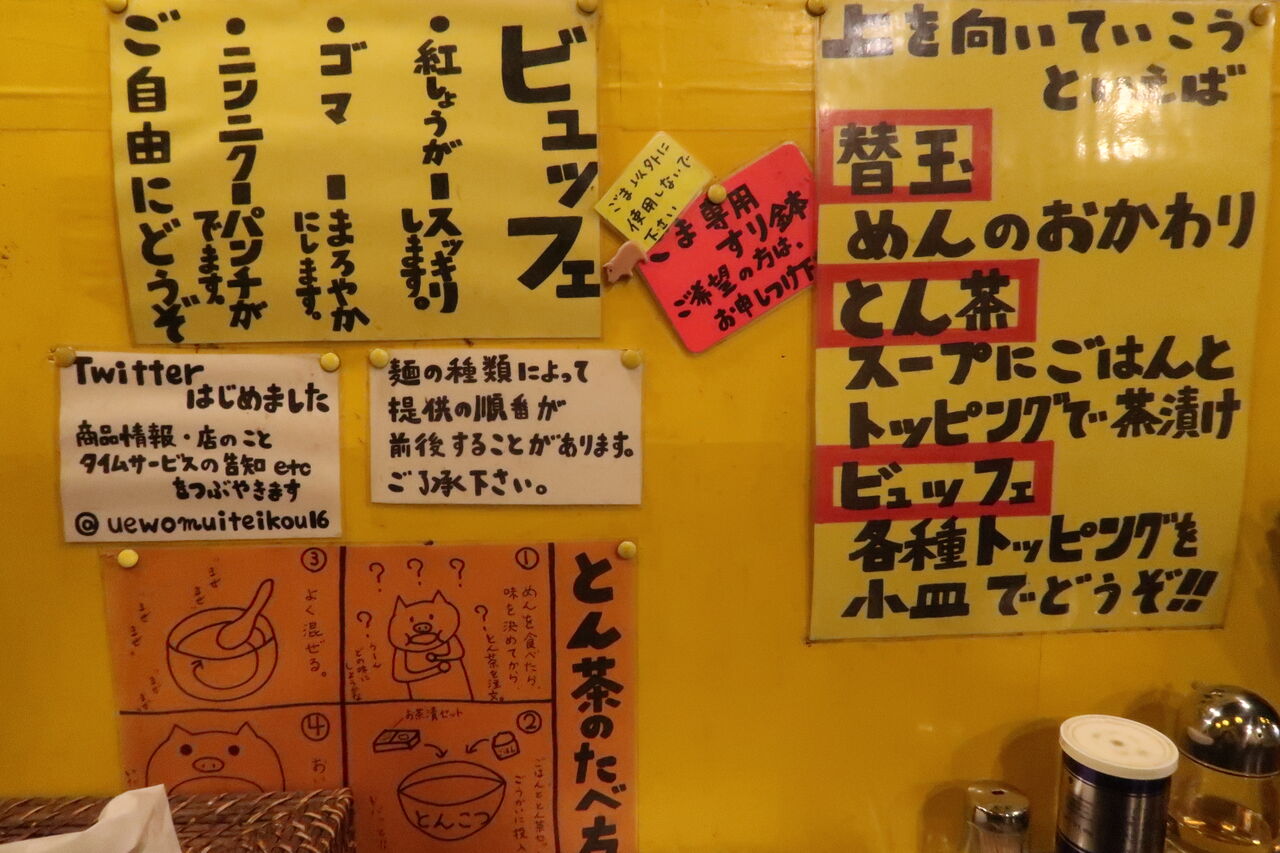 ビュッフェ
・紅しょうがースッキリ
します。
・ゴマ ーまろやか
にします。
・ニンニクーパンチが
でます。
ご自由にどうぞ
ごま以外に
使用しないで
下さい
ごま専用
すり鉢
ご希望の方は、
お申しつけ下
上を向いていこう
といえば
替玉
めんのおかわり
とん茶
スープにごはんと
トッピングで茶漬け
ビュッフェ
各種トッピングを
小皿でどうぞ!!
Twitter
はじめました
商品情報・店のこと
タイムサービスの告知 etc
をつぶやきます
@uewomuiteikou16
麺の種類によって
提供の順番が
前後することがあります。
ご了承下さい。
とん茶のたべ方
①
めんを食べたら、
味を決めてから、
とん茶を注文。
? ? ? ? ?
うーん
どの味に
しようかな
②
お茶漬セット
ごはん
とんこつ
③
よく混ぜる。
まぜ
まぜ
まぜ
まぜ
まぜ
④